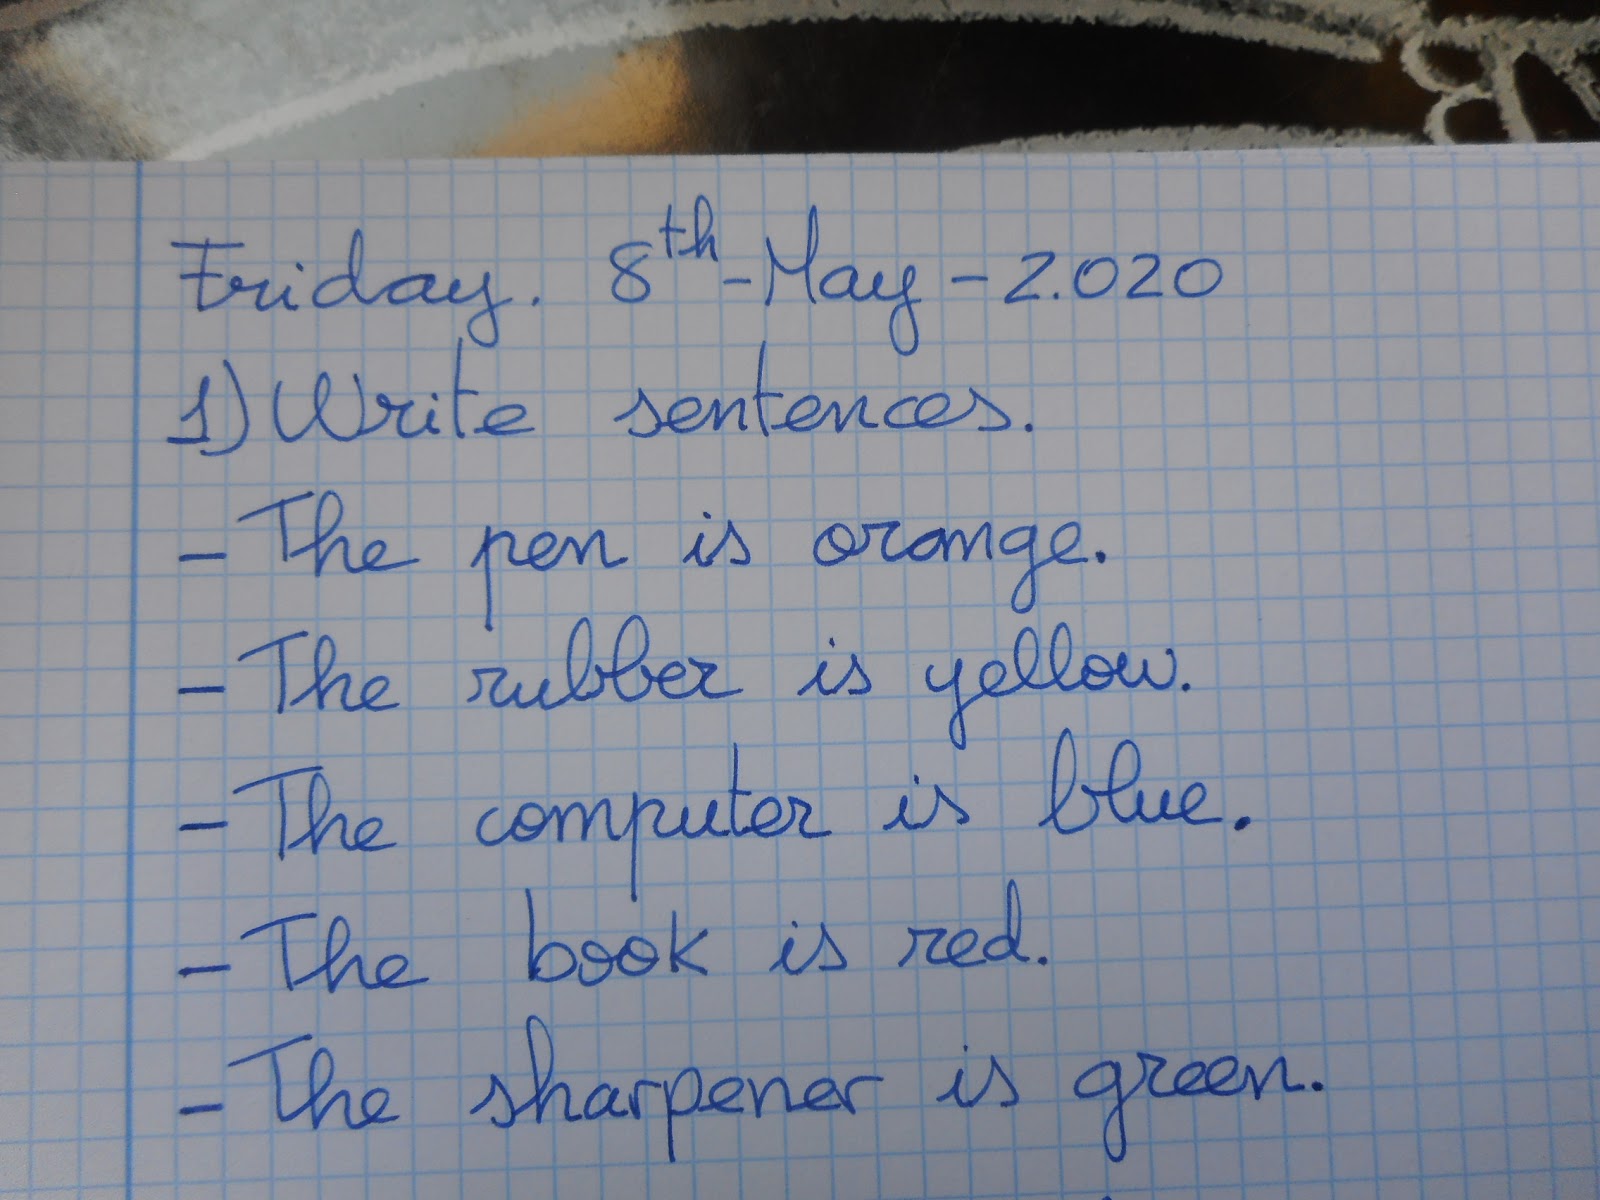 Friday. 8th-May-2.020
1) Write sentences.
- The pen is orange.
- The rubber is yellow.
- The computer is blue.
- The book is red.
- The sharpener is green.